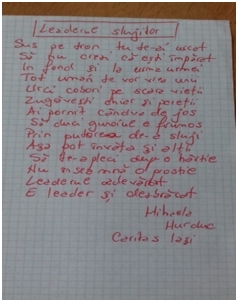 Leaderul slujitor
Sus pe tron tu te-ai urcat
Să nu crezi că ești împărat
În fond și la urma urmei
Tot urmări de vor vrea unii
Urci cobori pe scara vieții
Zugrăvești chiar și pereții
Ai pornit cândva de jos
Să duci gunoiul e frumos
Prin puterea de-a sluji
Așa pot învăța și alții
Să te apleci după o hârtie
Nu însemnă o prostie
Leaderul adevărat
E leader și dezbrăcat
Mihaela
Hurduc
Caritas Iași